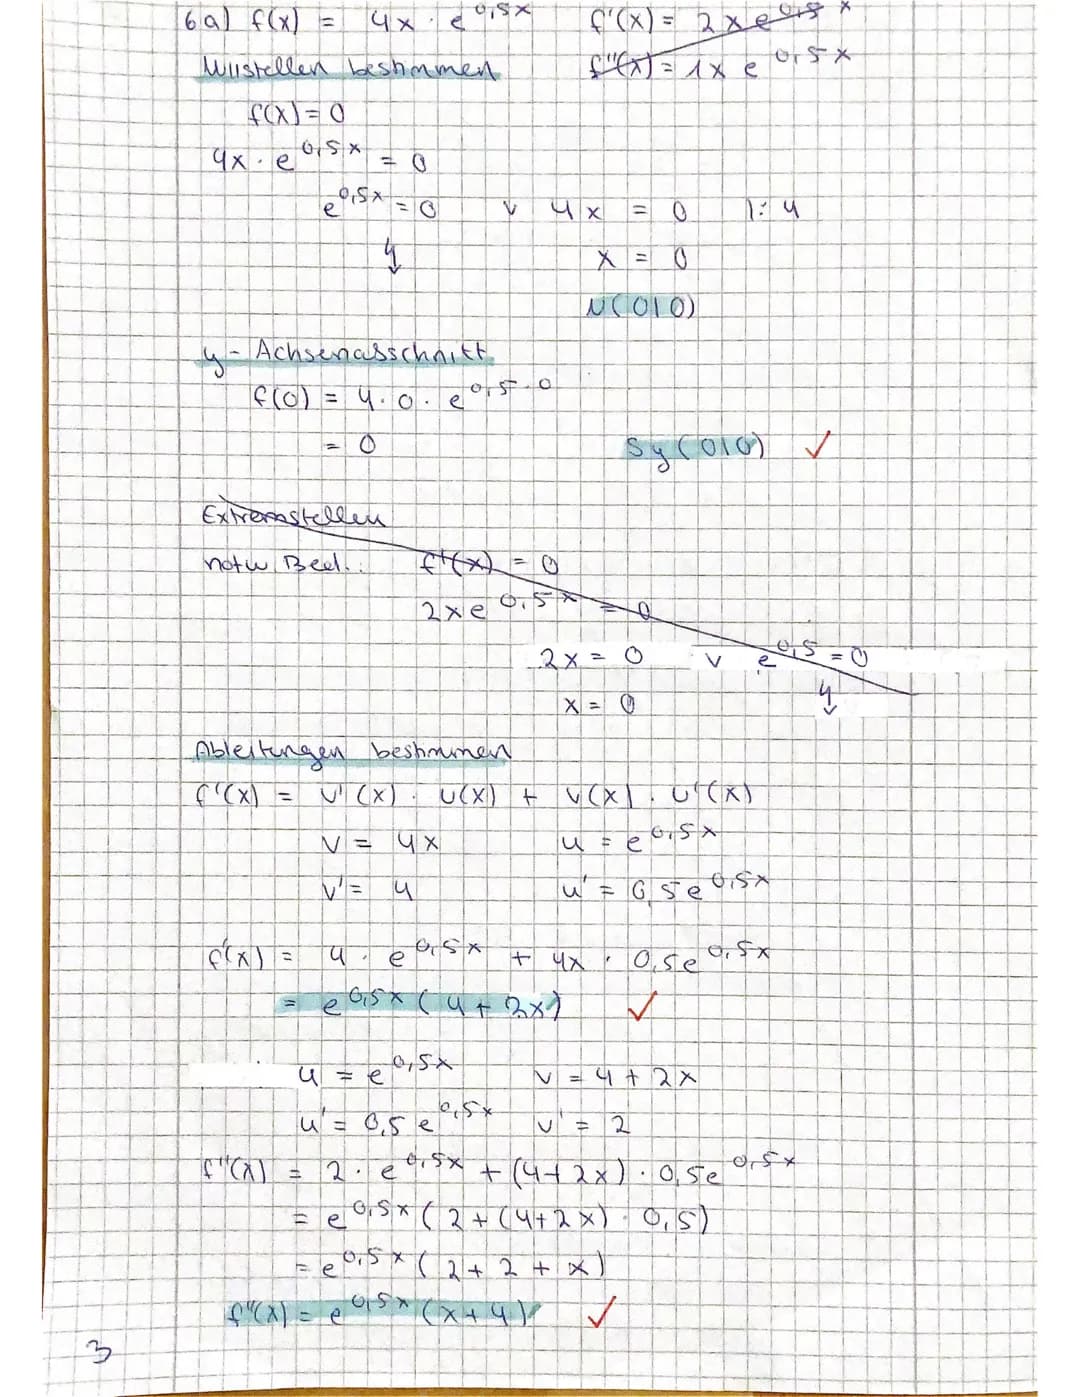 6a) f(x) = 4x · e^0,5x f'(x) = 2xe^0,5x
Nullstellen bestimmen f''(x) = 1x e^0,5x
f(x) = 0
4x · e^0,5x = 0
e^0,5x = 0 v 4x = 0 |: 4
↯ x = 0
N(0|0)
y-Achsenabschnitt
f(0) = 4 · 0 · e^0,5·0
= 0 Sy(0|0) ✓
Extremstellen
notw. Bed.: f'(x) = 0
2xe^0,5x = 0
2x = 0 v e^0,5 = 0
x = 0 ↯
Ableitungen bestimmen
f'(x) = v'(x) · u(x) + v(x) · u'(x)
v = 4x u = e^0,5x
v' = 4 u' = 0,5e^0,5x
f'(x) = 4 · e^0,5x + 4x · 0,5e^0,5x
= e^0,5x (4 + 2x) ✓
u = e^0,5x v = 4 + 2x
u' = 0,5 e^0,5x v' = 2
f''(x) = 2 · e^0,5x + (4+2x) · 0,5e^0,5x
= e^0,5x (2 + (4+2x) · 0,5)
= e^0,5x (2 + 2 + x)
f''(x) = e^0,5x (x+4) ✓
3